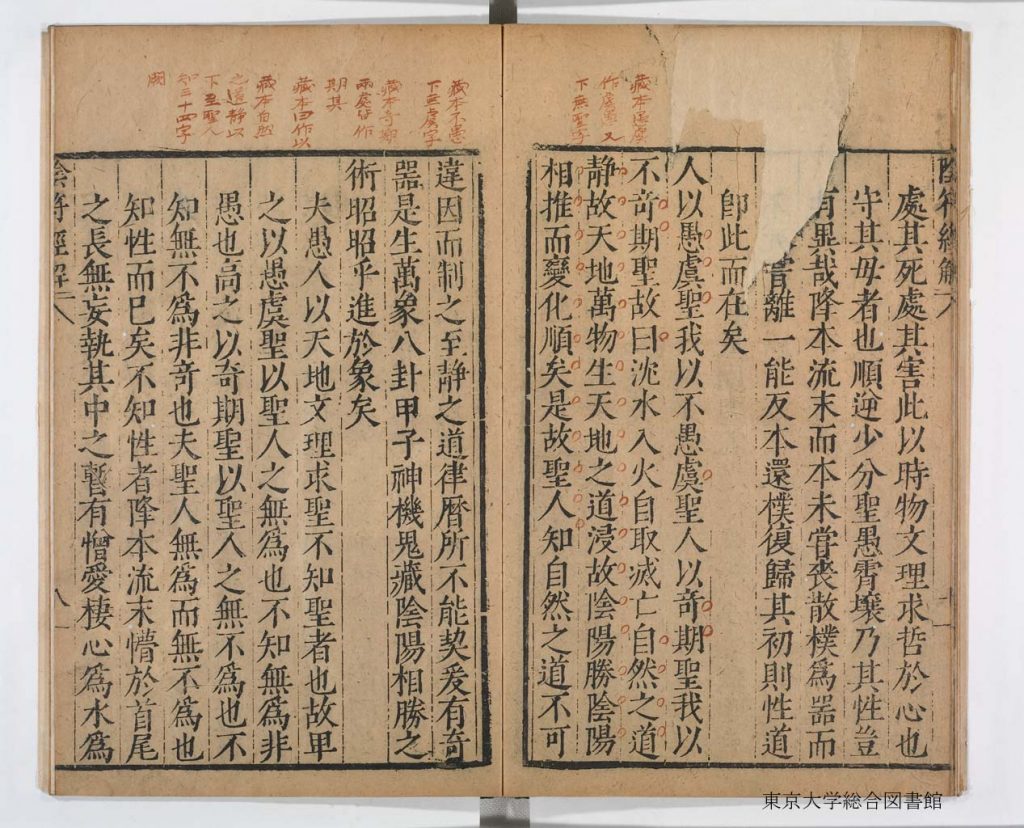 陰符經解
處其死處其害此以時物文理求哲於心也
守其母者也順逆少分聖愚霄壤乃其性豈
有異哉降本流末而本未甞喪散樸爲噐而
甞離一能反本還樸復歸其初則性道
卽此而在矣
藏本
作虞愚又
下無聖字
人以愚虞聖我以不愚虞聖人以奇期聖我以
不奇期聖故曰沈水入火自取滅亡自然之道
静故天地萬物生天地之道浸故陰陽勝陰陽
相推而變化順矣是故聖人知自然之道不可
藏本不愚
下無虞字
藏本奇期
兩處皆作
期其
藏本曰作以
藏本自然
之道靜以
下至聖人
知三十四字
闕
違因而制之至靜之道律曆所不能契爰有奇
噐是生萬象八卦甲子神機鬼藏陰陽相勝之
術昭昭乎進於象矣
夫愚人以天地文理求聖不知聖者也故卑
之以愚虞聖以聖人之無爲也不知無爲非
愚也高之以奇期聖以聖人之無不爲也不
知無不爲非奇也夫聖人無爲而無不爲也
知性而巳矣不知性者降本流末懵於首尾
之長無妄執其中之暫有憎愛棲心爲水爲
陰符經解
八
東京大学総合図書館